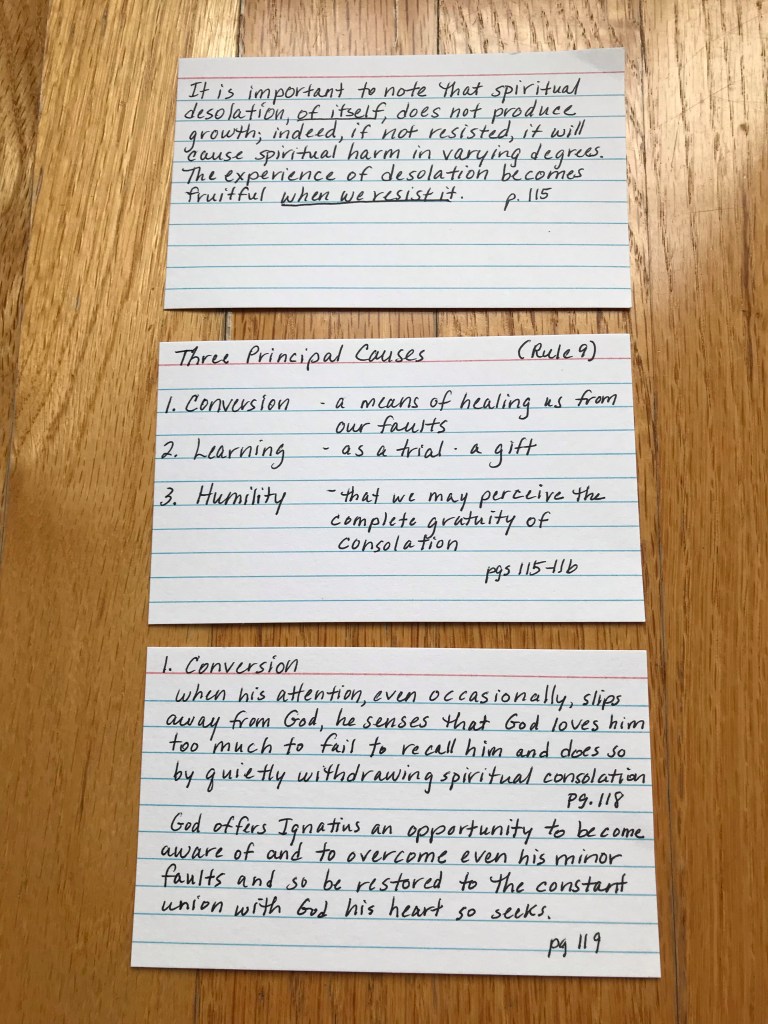 It is important to note that spiritual
desolation, of itself, does not produce
growth; indeed, if not resisted, it will
cause spiritual harm in varying degrees.
The experience of desolation becomes
fruitful when we resist it. p. 115
Three Principal Causes (Rule 9)
1. Conversion - a means of healing us from
our faults
2. Learning - as a trial - a gift
3. Humility - that we may perceive the
complete gratuity of
consolation
pgs 115-116
1. Conversion
when his attention, even occasionally, slips
away from God, he senses that God loves him
too much to fail to recall him and does so
by quietly withdrawing spiritual consolation
pg. 118
God offers Ignatius an opportunity to become
aware of and to overcome even his minor
faults and so be restored to the constant
union with God his heart so seeks.
pg 119